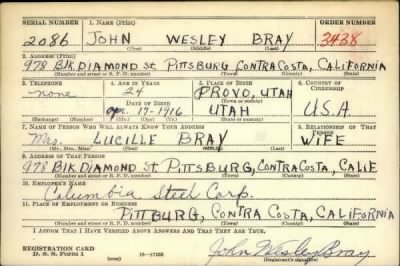 SERIAL NUMBER 1. NAME (Print) ORDER NUMBER
2086 JOHN WESLEY BRAY 3438
(First) (Middle) (Last)
2. ADDRESS (Print)
978 Blk. DIAMOND St. PITTSBURG CONTRA COSTA, CALIFORNIA
(Number and street or R. F. D. number) (Town) (County) (State)
3. TELEPHONE 4. AGE IN YEARS 5. PLACE OF BIRTH 6. COUNTRY OF CITIZENSHIP
none 24 PROVO, UTAH
DATE OF BIRTH (Town or county)
Apr. 17-1916 UTAH U.S.A.
(Exchange) (Number) (Mo.) (Day) (Yr.) (State or country)
7. NAME OF PERSON WHO WILL ALWAYS KNOW YOUR ADDRESS 8. RELATIONSHIP OF THAT PERSON
Mrs. LUCILLE BRAY WIFE
(Mr., Mrs., Miss) (First) (Middle) (Last)
9. ADDRESS OF THAT PERSON
978 Blk. DIAMOND St. PITTSBURG, CONTRA COSTA, CALIF
(Number and street or R. F. D. number) (Town) (County) (State)
10. EMPLOYER'S NAME
Columbia Steel Corp.
11. PLACE OF EMPLOYMENT OR BUSINESS
PITTBURG, CONTRA COSTA, CALIFORNIA
(Number and street or R. F. D. number) (Town) (County) (State)
I AFFIRM THAT I HAVE VERIFIED ABOVE ANSWERS AND THAT THEY ARE TRUE.
REGISTRATION CARD
D. S. S. Form 1 (over) John Wesley Bray
(Registrant's signature)